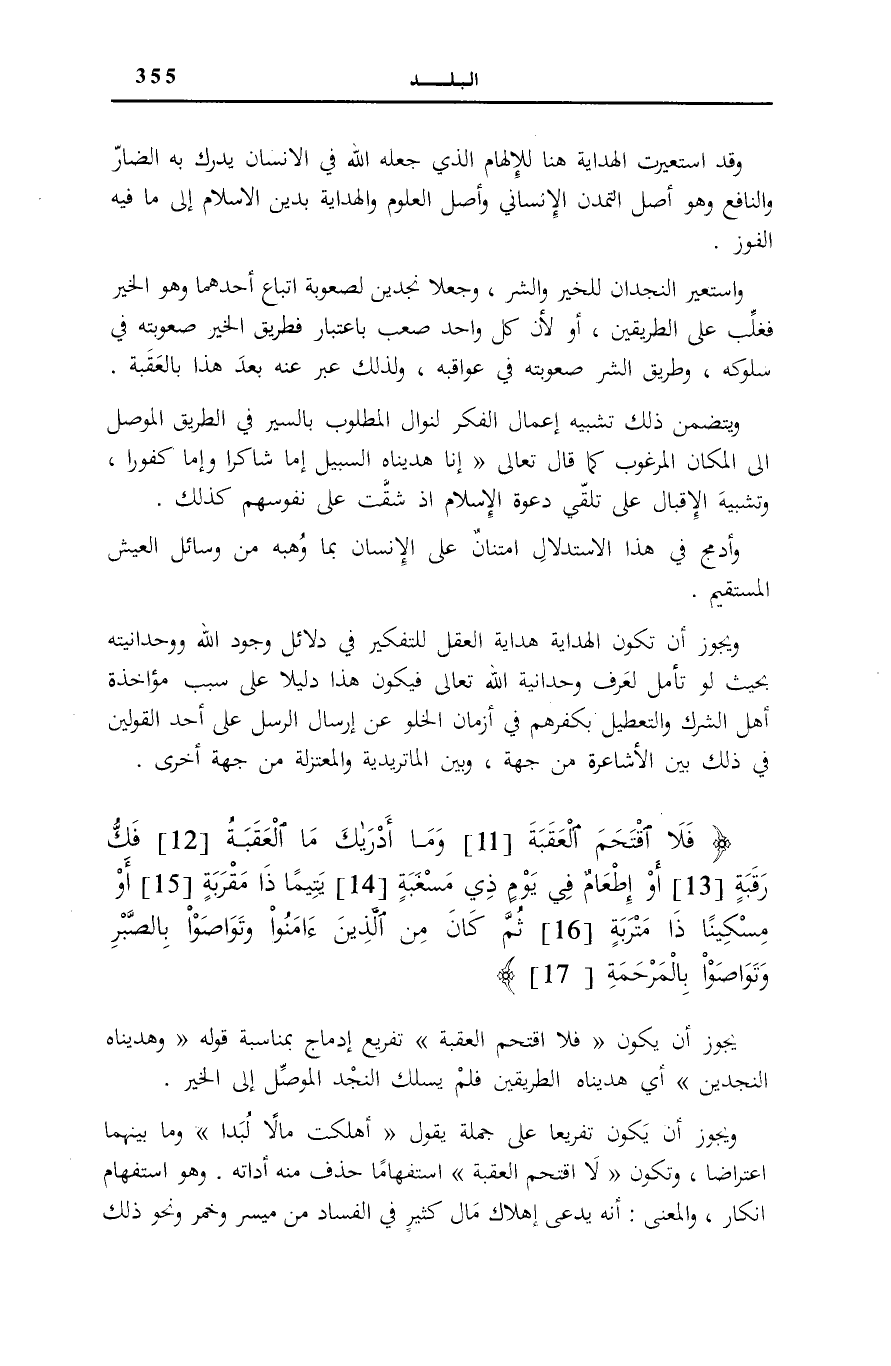 البلـــــد 355
وقد استعيرت الهداية هنا للإلهام الذي جعله الله في الانسان يدرك به الضارّ
والنافع وهو أصل التمدن الإنساني وأصل العلوم والهداية بدين الاسلام إلى ما فيه
الفوز .
واستعير النجدان للخير والشر ، وجعلا نجدين لصعوبة اتباع أحدهما وهو الخير
فغلِّب على الطريقين ، أو لأن كل واحد صعب باعتبار فطريق الخير صعوبته في
سلوكه ، وطريق الشر صعوبته في عواقبه ، ولذلك عبر عنه بعدَ هذا بالعَقَبة .
ويتضمن ذلك تشبيه إعمال الفكر لنوال المطلوب بالسير في الطريق الموصل
الى المكان المرغوب كما قال تعالى « إنا هديناه السبيل إما شاكرا وإما كفورا ،
وتشبيهَ الإقبال على تلقّي دعوة الإسلام اذ شقَّت على نفوسهم كذلك .
وأدمج في هذا الاستدلالِ امتنانٌ على الإنسان بما وُهبه من وسائل العيش
المستقيم .
ويجوز أن تكون الهداية هداية العقل للتفكير في دلائل وجود الله ووحدانيته
بحيث لو تأمل لعَرف وحدانية الله تعالى فيكون هذا دليلا على سبب مؤاخذة
أهل الشرك والتعطيل بكفرهم في أزمان الخلو عن إرسال الرسل على أحد القولين
في ذلك بين الأشاعرة من جهة ، وبين الماتريدية والمعتزلة من جهة أخرى .
﴿ فَلَا ٱقْتَحَمَ ٱلْعَقَبَةَ [11] وَمَـا أَدْرَيٰكَ مَا ٱلْعَقَبَـةُ [12] فَكُّ
رَقَبَةٍ [13] أَوْ إِطْعَامٌ فِي يَوْمٍ ذِي مَسْغَبَةٍ [14] يَتِيمًا ذَا مَقْرَبَةٍ [15] أَوْ
مِسْكِينًا ذَا مَتْرَبَةٍ [16] ثُمَّ كَانَ مِن ٱلَّذِينَ ءَامَنُواْ وتَوَاصَوْاْ بِالصَّبْرِ
وَتَوَاصَوْاْ بِالْمَرْحَمَةِ [ 17 ] ﴾
يجوز أن يكون « فلا اقتحم العقبة » تفريع إدماج بمناسبة قوله « وهديناه
النجدين » أي هديناه الطريقين فلمْ يسلك النجْد الموصِّل إلى الخير .
ويجوز أن يَكون تفريعا على جملة يقول « أهلكت مالًا لُبَدا » وما بينهما
اعتراضا ، وتكون « لَا اقتحم العقبة » استفهامًا حذف منه أداته . وهو استفهام
انكار ، والمعنى : أنه يدعى إهلاك مَال كثيرٍ في الفساد من ميسر وخمر ونحو ذلك